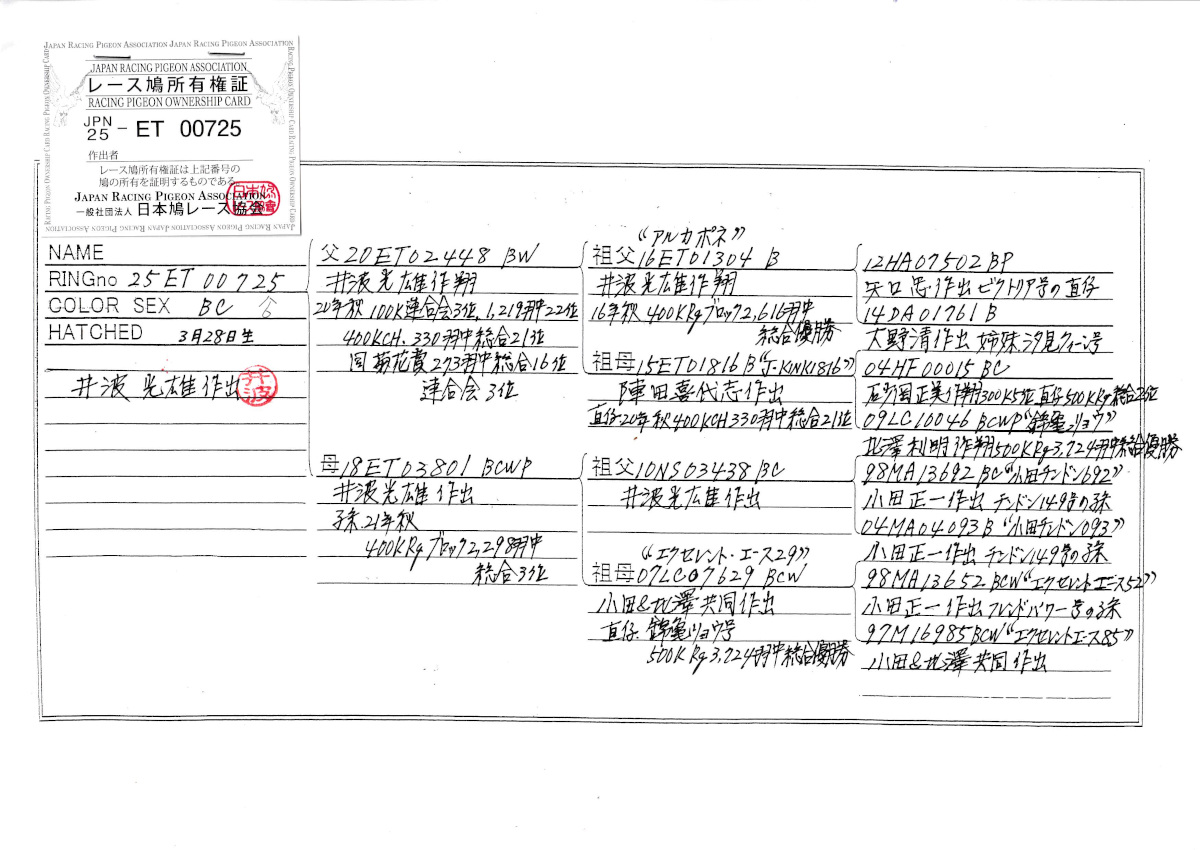 JAPAN RACING PIGEON ASSOCIATION JAPAN RACING PIGEON ASSOCIATION
JAPAN RACING PIGEON ASSOCIATION
レース鳩所有権証
RACING PIGEON OWNERSHIP CARD
JPN
25 - ET 00725
作出者
レース鳩所有権証は上記番号の
鳩の所有を証明するものである。
JAPAN RACING PIGEON ASSOCIATION
一般社団法人 日本鳩レース協会
NAME
RINGno 25ET 00725
COLOR SEX BC 合
HATCHED 3月28日生
井波 光雄作出
井波
父20ET02448 BW
井波光雄作翔
20年秋 100K連合会3位, 1,219羽中22位
400KCH. 330羽中総合21位
同 菊花賞273羽中総合16位
連合会3位
母18ET03801 BCWP
井波光雄作出
孫.21年秋
400KRgブロック2,298羽中
総合3位
"アルカポネ"
祖父16ET01304 B
井波光雄作翔
16年秋 400KRgブロック2,616羽中
総合優勝
祖母15ET01816 B "J-KINKI816"
陣田喜代志作出
直仔20年秋400KCH330羽中総合21位
祖父10NS03438 BC
井波光雄作出
"エクセレント・エース29"
祖母07LC07629 BCW
小田&北澤共同作出
直仔 錦亀リョウ号
500KRg3,724羽中総合優勝
12HA07502 BP
矢口忠作出ビクトリア号の直仔
14DA01761 B
大野清作出 姉妹汐見クィーン号
04HF00015 BC
正美作翔300K5位直仔500KRg総合2位
09LC10046 BCWP "錦亀リョウ"
北澤利明作翔500KRg3,724羽中総合優勝
98MA13692 BC "小田チンドン692"
小田正一作出 チンドン149号の孫
04MA04093 B "小田チンドン093"
小田正一作出 チンドン149号の孫
98MA13652 BCW "エクセレントエース52"
小田正一作出フレンドパワー号の孫
97M16985 BCW "エクセレントエース85"
小田&北澤共同作出